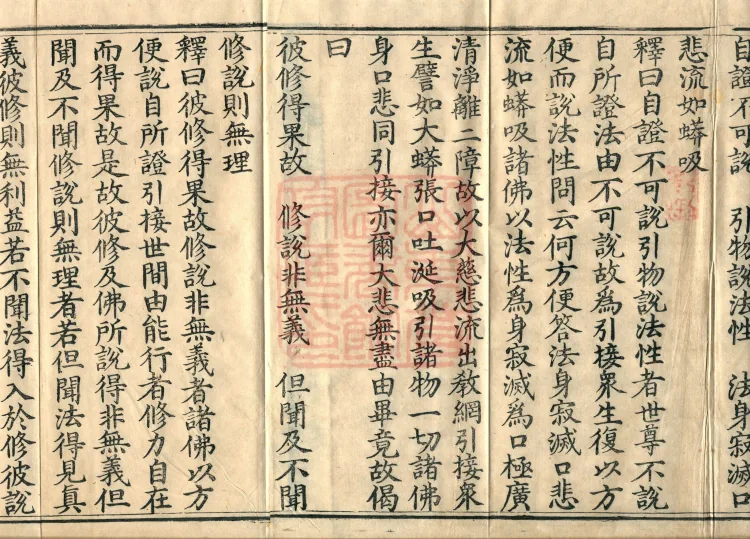 自證不可說　引物說法性　法身寂滅口
悲流如蟒吸
釋曰自證不可說引物說法性者世尊不說
自所證法由不可說故為引接衆生復以方
便而說法性問云何方便答法身寂滅口悲
流如蟒吸諸佛以法性為身寂滅為口極廣
清淨離二障故以大慈悲流出教網引接衆
生譬如大蟒張口吐涎吸引諸物一切諸佛
身口悲同引接亦爾大悲無盡由畢竟故偈
曰
彼修得果故　修說非無義　但聞及不聞
修說則無理
釋曰彼修得果故修說非無義者諸佛以方
便說自所證引接世間由能行者修力自在
而得果故是故彼修及佛所說得非無義但
聞及不聞修說則無理者若但聞法得見真
義彼修則無利益若不聞法得入於修彼說